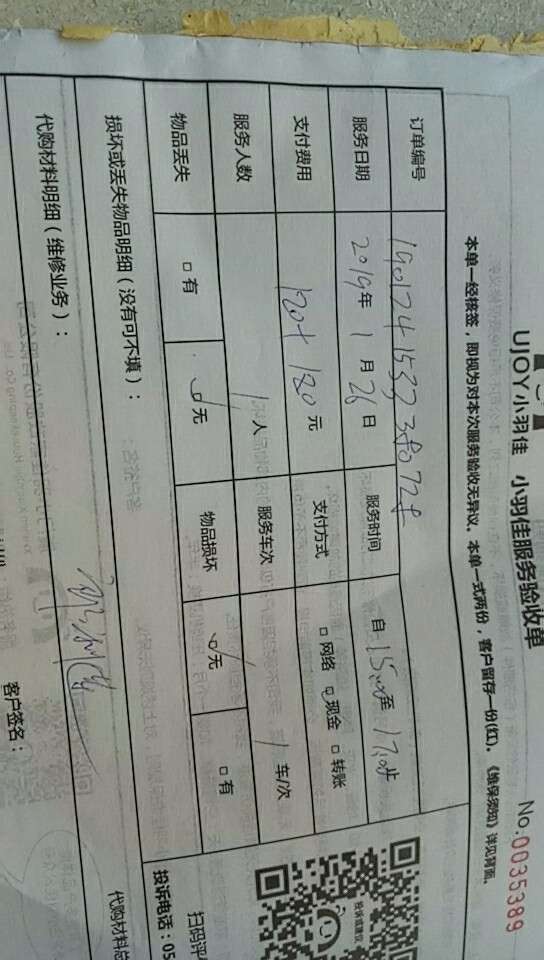 UJOY小羽佳 小羽佳服务验收单
No.0035389
本单一经核签，即视为对本次服务验收无异议。本单一式两份，客户留存一份(红)。《维保须知》详见背面。
订单编号
服务日期 2019年 1月 26日 服务时间 自 15:00至 17:00
支付费用 120+180元 支付方式 □网络 ☑现金 □转账
服务人数 1人 服务车次 1车/次
物品丢失 □有 ☑无 物品损坏 ☑无 □有
损坏或丢失物品明细（没有可不填）：
代购材料明细（维修业务）：
代购材料总
客户签名：
投诉或建议
扫码评
投诉电话：05